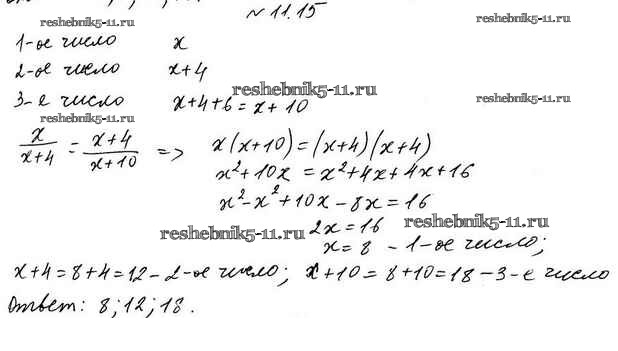 № 11.15
reshebnik5-11.ru reshebnik5-11.ru
1-ое число x
2-ое число x+4
reshebnik5-11.ru
3-е число x+4+6=x+10 reshebnik5-11.ru
reshebnik5-11.ru
x/x+4 = x+4/x+10 => x(x+10)=(x+4)(x+4)
x²+10x = x²+4x+4x+16
x²-x²+10x-8x=16
2x=16 reshebnik5-11.ru
reshebnik5-11.ru
x=8 - 1-ое число;
x+4=8+4=12-2-ое число; x+10=8+10=18-3-е число
Ответ: 8; 12; 18.